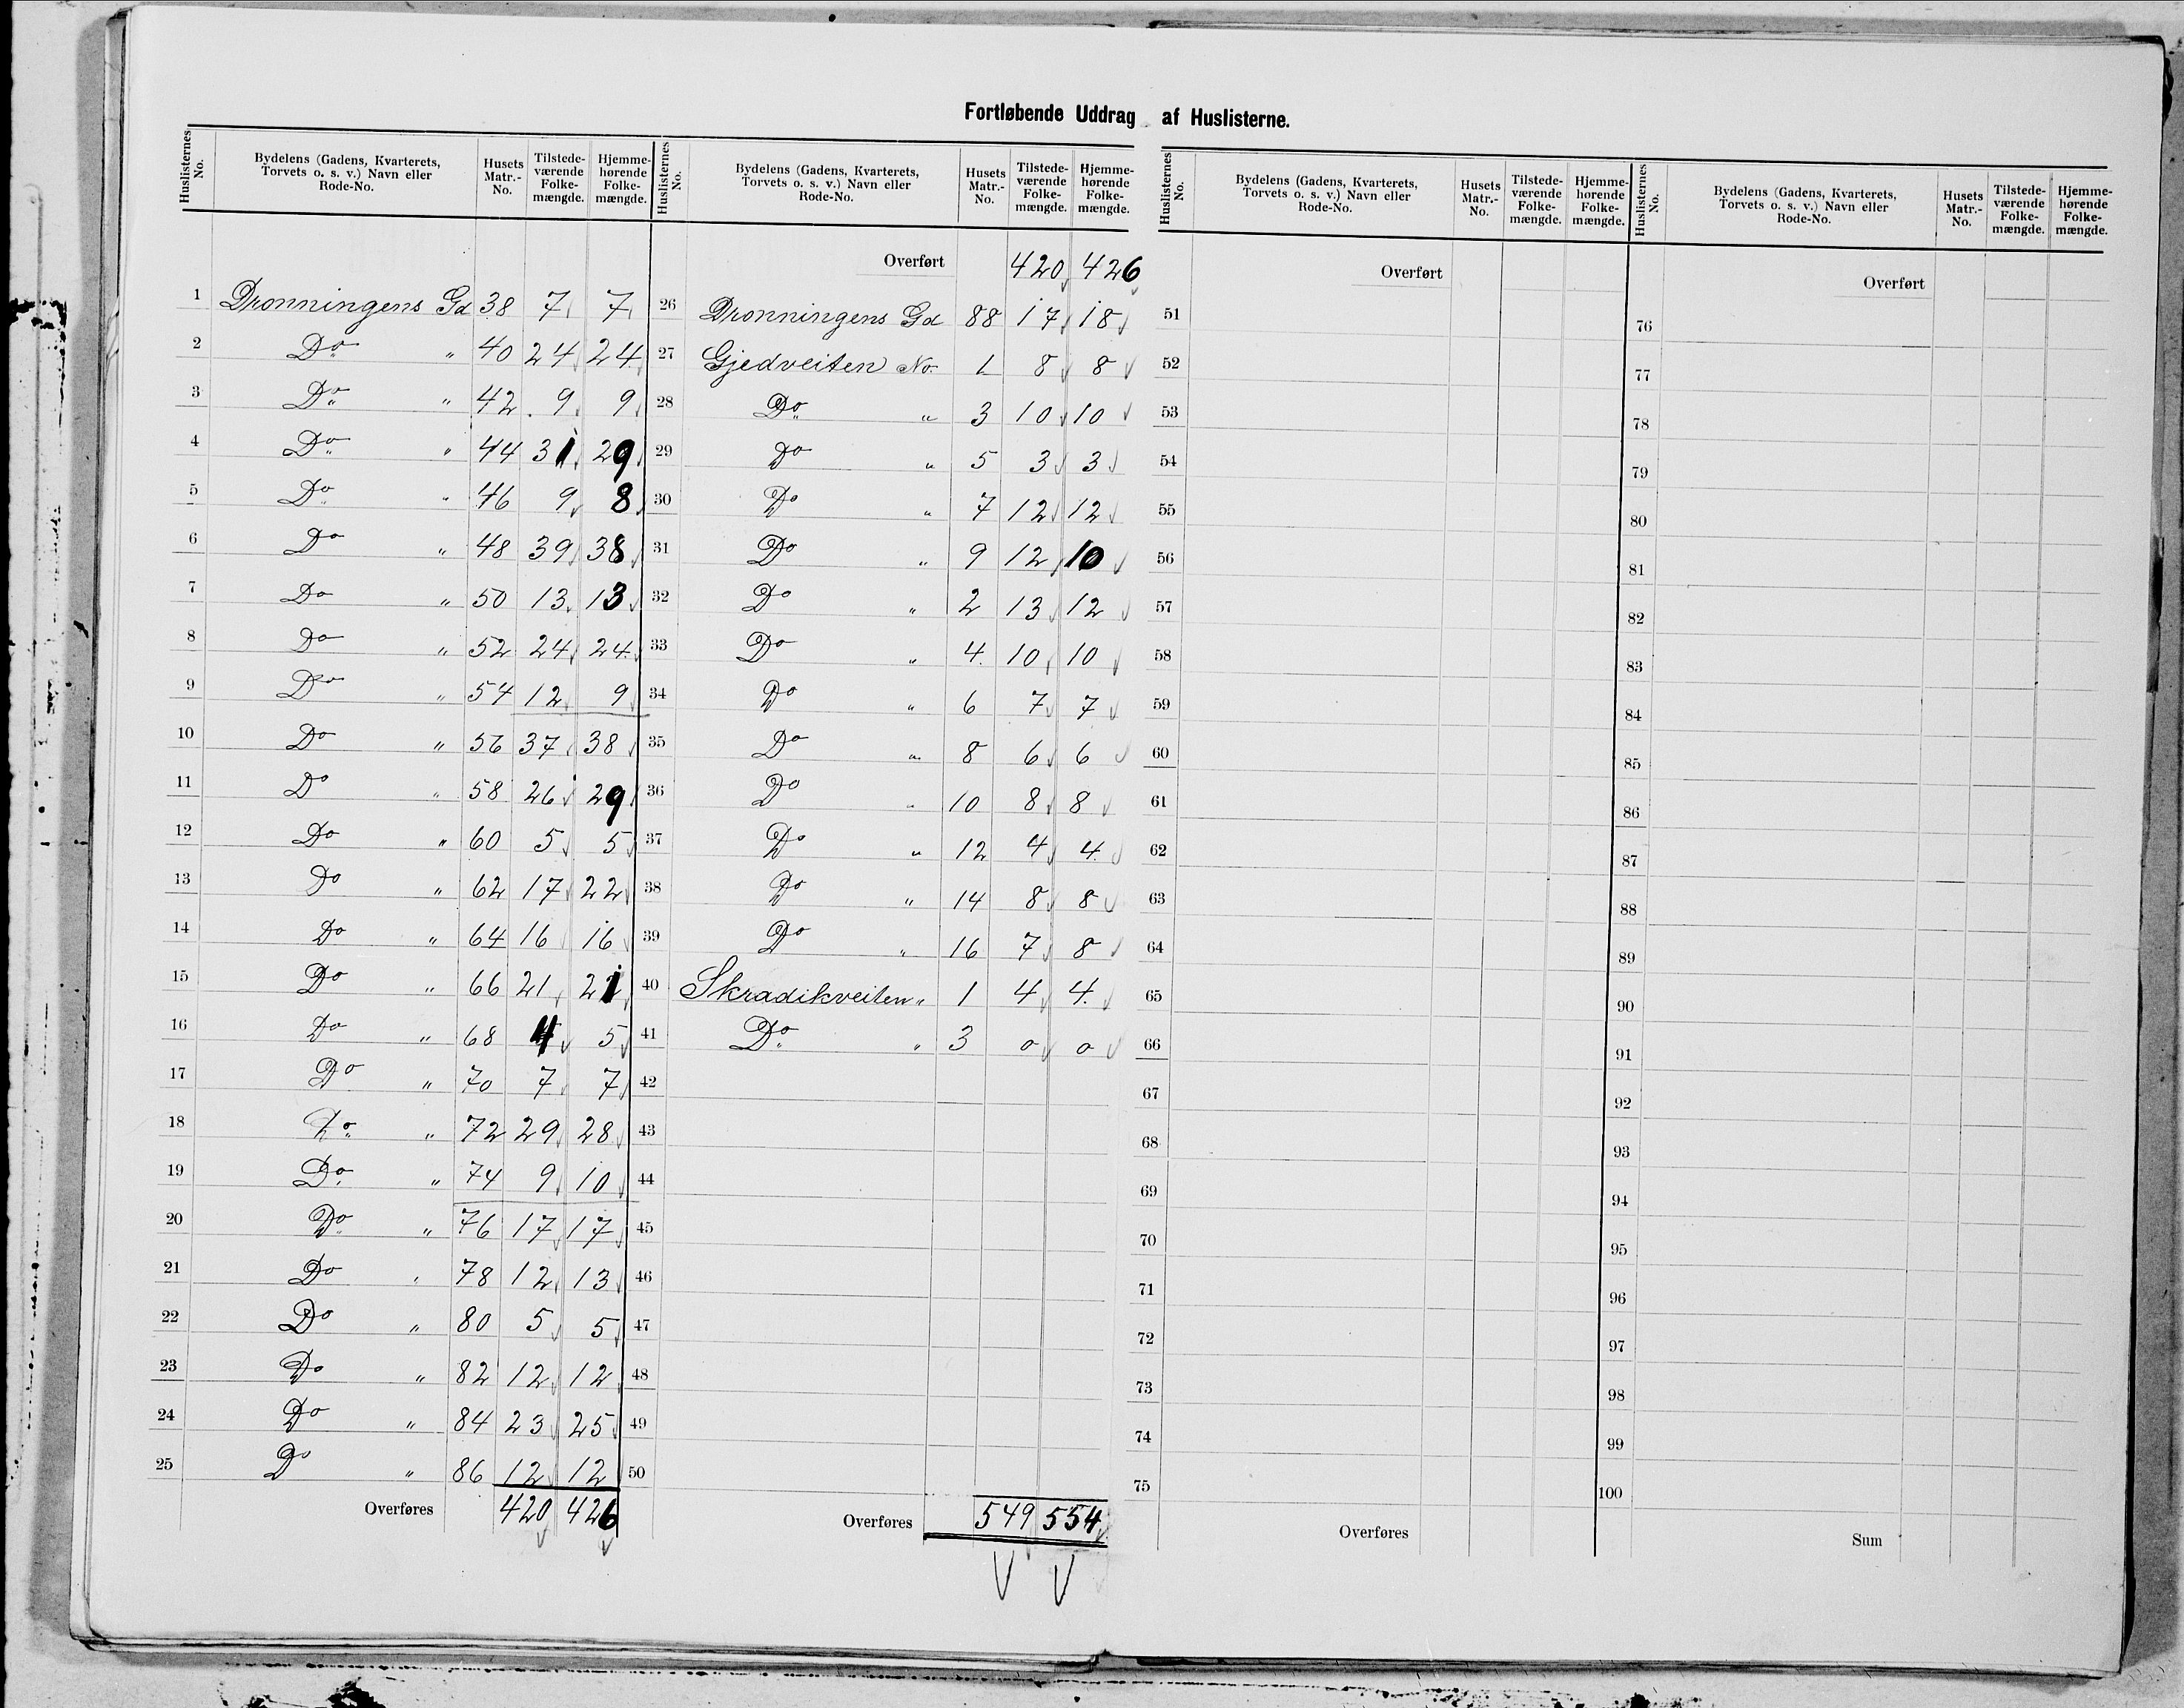 Fortløbende Uddrag af Huslisterne.
Huslisternes No. | Bydelens (Gadens, Kvarterets, Torvets o. s. v.) Navn eller Rode-No. | Husets Matr.-No. | Tilstede-værende Folke-mængde. | Hjemme-hørende Folke-mængde.
1 Dronningens Gd 38 7 7
2 Do " 40 24 24
3 Do " 42 9 9
4 Do " 44 31 29
5 Do " 46 9 8
6 Do " 48 39 38
7 Do " 50 13 13
8 Do " 52 24 24
9 Do " 54 12 9
10 Do " 56 37 38
11 Do " 58 26 29
12 Do " 60 5 5
13 Do " 62 17 22
14 Do " 64 16 16
15 Do " 66 21 21
16 Do " 68 4 5
17 Do " 70 7 7
18 Do " 72 29 28
19 Do " 74 9 10
20 Do " 76 17 17
21 Do " 78 12 13
22 Do " 80 5 5
23 Do " 82 12 12
24 Do " 84 23 25
25 Do " 86 12 12
Overføres 420 426
Huslisternes No. | Bydelens (Gadens, Kvarterets, Torvets o. s. v.) Navn eller Rode-No. | Husets Matr.-No. | Tilstede-værende Folke-mængde. | Hjemme-hørende Folke-mængde.
Overført 420 426
26 Dronningens Gd 88 17 18
27 Gjedveiten No. 1 8 8
28 Do " 3 10 10
29 Do " 5 3 3
30 Do " 7 12 12
31 Do " 9 12 10
32 Do " 2 13 12
33 Do " 4 10 10
34 Do " 6 7 7
35 Do " 8 6 6
36 Do " 10 8 8
37 Do " 12 4 4
38 Do " 14 8 8
39 Do " 16 7 8
40 Skradikveiten " 1 4 4
41 Do " 3 0 0
42
43
44
45
46
47
48
49
50
Overføres 549 554
Huslisternes No. | Bydelens (Gadens, Kvarterets, Torvets o. s. v.) Navn eller Rode-No. | Husets Matr.-No. | Tilstede-værende Folke-mængde. | Hjemme-hørende Folke-mængde.
Overført
51
52
53
54
55
56
57
58
59
60
61
62
63
64
65
66
67
68
69
70
71
72
73
74
75
Overføres
Huslisternes No. | Bydelens (Gadens, Kvarterets, Torvets o. s. v.) Navn eller Rode-No. | Husets Matr.-No. | Tilstede-værende Folke-mængde. | Hjemme-hørende Folke-mængde.
Overført
76
77
78
79
80
81
82
83
84
85
86
87
88
89
90
91
92
93
94
95
96
97
98
99
100
Sum